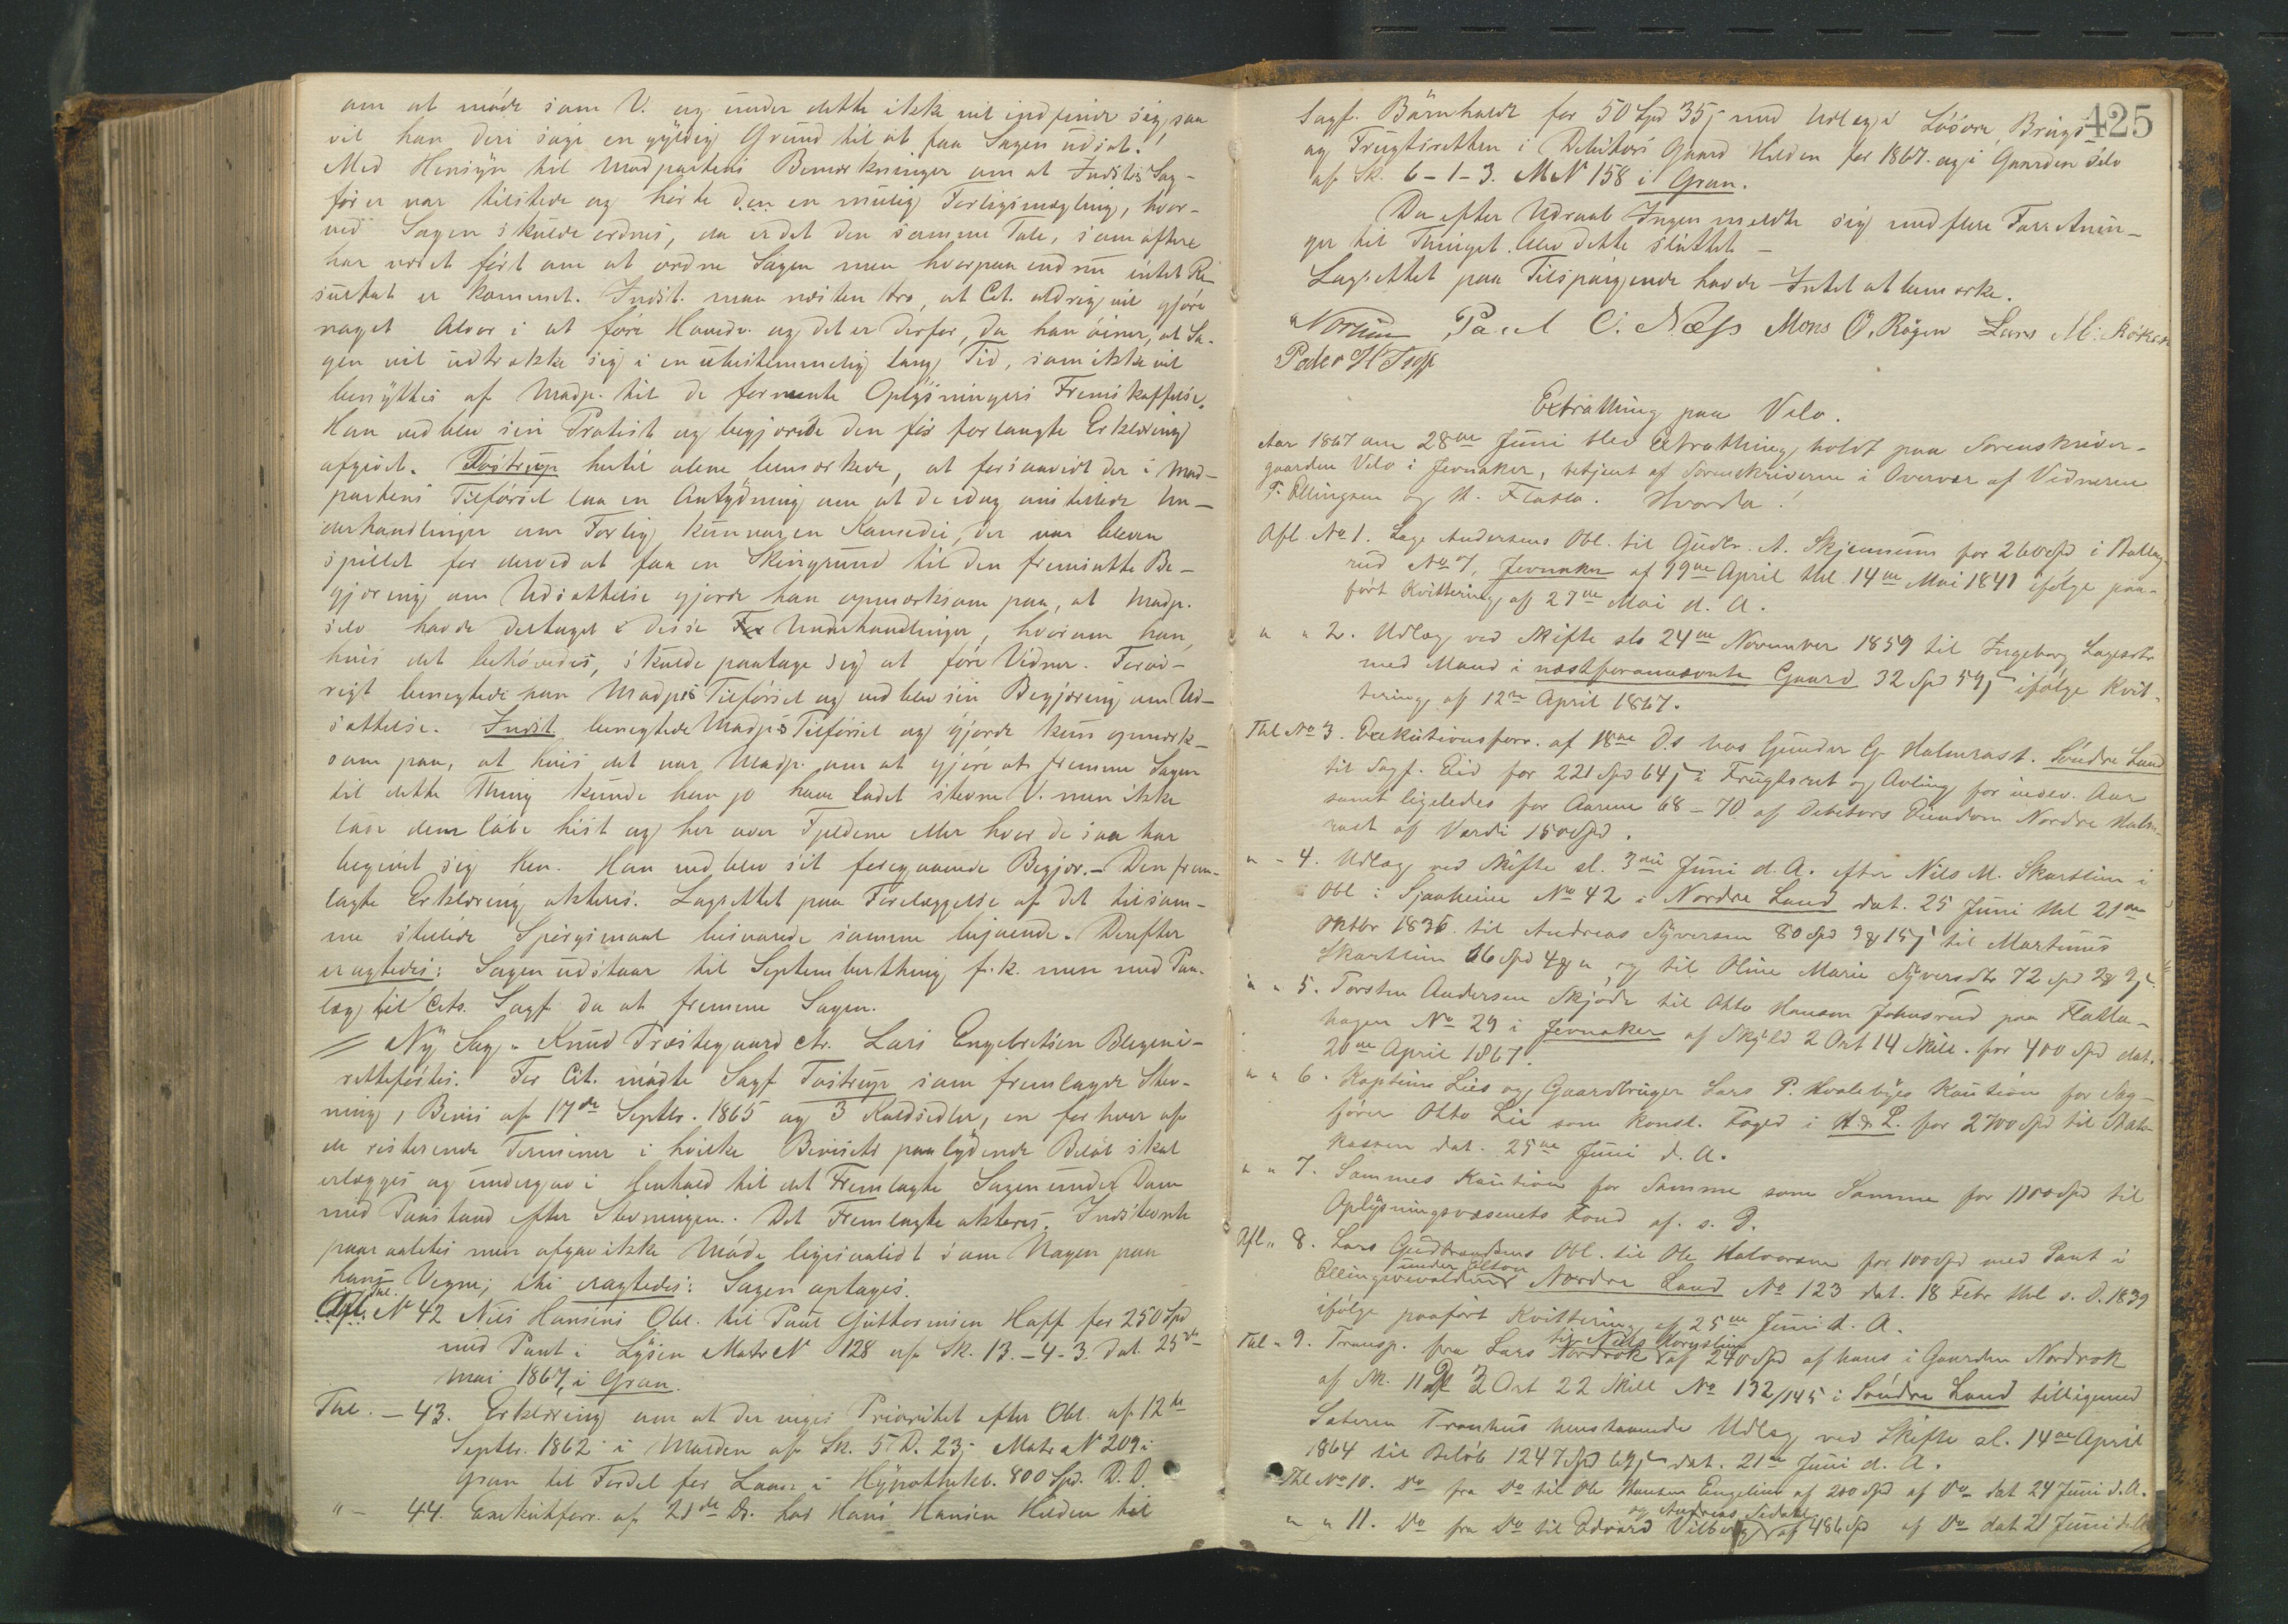 om at møde som V. og under dette ikke vil indfinde sig, saa
vil han deri søge en gyldig Grund til at faa Sagen udsat.
Med Hensyn til Modpartens Bemærkninger om at Indsts Sag-
fører var tilstede og hørte den en mulig Forligsmægling, hvor-
ved Sagen skulde ordnes, da er det den samme Tale, som oftere
har været ført om at ordne Sagen men hvorpaa endnu intet Re-
sultat er kommet. Indst. maa næsten tro, at Cit. aldrig vil gjøre
noget Alvor i at føre Hoveds. og det er derfor, da han øiner, at Sa-
gen vil udtrække sig i en ubestemmelig lang Tid, som ikke vil
benyttes af Modp. til de formente Oplysningers Fremskaffelse.
Han vedblev sin Protest og begjærede den før forlangte Erklæring
afgivet. Tostrup hertil alene bemærkede, at forsaavidt der i Mod-
partens Tilførsel laa en Antydning om at de idag anstillede Un-
derhandlinger om Forlig kun var en Komedie, der var bleven
spillet for derved at faa en Skingrund til den fremsatte Be-
gjæring om Udsættelse gjorde han opmærksom paa, at Modp.
selv havde deltaget i disse Underhandlinger, hvorom han,
hvis det behøvedes, skulde paatage sig at føre Vidner. Forøv-
rigt benegtede han Modps Tilførsel og vedblev sin Begjæring om Ud-
sættelse. Indst. benegtede Modps Tilførsel og gjorde kun opmærk-
som paa, at hvis det var Modp. om at gjøre at fremme Sagen
til dette Thing kunde han jo have ladet stevne V. men ikke
lade dem løbe hist og her over Fjeldene eller hvor de saa har
begivet sig hen. Han vedblev sit foregaaende Begjær. – Den frem-
lagte Erklæring akteres. Lagrettet paa Forelæggelse af det tilsam-
me stillede Spørgsmaal besvarede samme bejaende. Derefter
eragtedes: Sagen udstaar til Septemberthing f. k. men med Paa-
læg til Cits. Sagf. da at fremme Sagen.
Ny Sag. Knud Præstegaard ctr. Lars Engebretsen Blegeni-
rettefortes. For Cit. mødte Sagf Tostrup som fremlagde Stev-
ning, Bevis af 17de Septbr. 1865 og 3 Kaldsedler, en for hver af
de resterende Terminer i hvilke Bevisets paalydende Beløb skal
erlægges og indergav i Henhold til det Fremlagte Sagen under Dom
med Paastand efter Stevningen. Det Fremlagte akteres. Indstevnte
paaraabtes men afgav ikke Møde ligesaalidt som Nogen paa
hans Vegne; thi eragtedes: Sagen optages.
Thl. N 42 Nils Hansens Obl. til Paul Guttormsen Hoff for 250 Spd
med Pant i Lysen Matr N 128 af Sk. 13.–4–3. dat. 25de
Mai 1867, i Gran.
Thl. – 43. Erklæring om at der viges Prioritet efter Obl. af 12te
Septbr. 1862 i Morden af Sk. 5 D. 23 Matr N 209 i
Gran til Fordel for Laan i Hypothekb. 800 Spd. D. D.
" – 44. Exekutforr. af 21de Ds. hos Hans Hansen Helden til
425
Sagf. Barnholdt for 50 Spd 35 med Udlæg i Løsøre, Brugs
og Frugtretten i Debitors Gaard Helden for 1867. og i Gaarden selv
af Sk. 6–1–3. M N 158 i Gran.
Da efter Udraab Ingen meldte sig med flere Forretnin-
ger til Thinget blev dette sluttet –
Lagrettet paa Tilspørgende havde Intet at bemærke.
Paul C. Næss Mons O. Røgen Lars M.
Peder H
Extrathing paa Velo.
Aar 1867 am 28de Juni blev Extrathing holdt paa Sorenskriver-
gaarden Velo i Jevnaker, betjent af Sorenskriveren i Overvær af Vidnerne
F. Ellingsen og H. Flatla. Hvorda!
Afl. No 1. Lage Andersens Obl. til Gudbr. A. Skjennum for 260 Spd i
rud No 7, Jevnaker af 19de April thl. 14de Mai 1841 ifølge paa-
ført Kvittering af 27de Mai d. A.
" " 2. Udlæg ved Skifte sl. 24de November 1859 til Ingeborg Lagesdtr
med Mand i næstforannævnte Gaard 32 Spd 59 ifølge Kvit-
tering af 12te April 1867.
Thl No 3. Exekutionsforr. af 18de D.s hos Gunder G. Halmrast. Søndre Land
til Sagf. Eid for 221 Spd 64 i Frugtsret og Avling for indev. Aar
samt ligeledes for Aarene 68–70 af Debitors Eiendom Nordre Halm-
rast af Værdi 1500 Spd.
" – 4. Udlæg ved Skifte sl. 3die Juni d. A. efter Nils M. Skartlien i
Obl. i Sjaaheim No 42 i Nordre Land dat. 25 Juni thl 21de
Oktbr 1836 til Andreas Syversen 80 Spd 15 til Martinus
Skartlien 66 Spd og til Oline Marie Syversdtr 72 Spd
" " 5. Torsten Andersens Skjøde til Otto Hansen Johnsrud paa Flatla-
hagen No 29 i Jevnaker af Skyld 2 Ort 14 Skill. for 400 Spd dat.
20de April 1867.
" " 6. Kaptein Lies og Gaardbruger Lars P. Hvalebyes Kaution for Sag-
fører Otto Lie som konst. Foged i H. & L. for 2700 Spd til Stats-
kassen dat. 25de Juni d. A.
" " 7. Sammes Kaution for Samme som Samme for 1100 Spd til
Oplysningsvæsenets Fond af. s. D.
Afl. " 8. Lars Gudbrandsens Obl. til Ole Halvorsen for 100 Spd med Pant i
under Elton
Nordre Land No 123 dat. 18 Febr thl s. D. 1839
ifølge paaført Kvittering af 25de Juni d. A.
Thl " 9. Transp. fra Lars Nordrok til Niels af 240 Spd af hans i Gaarden Nordrok
af Sk. 11 3 Ort 22 Skill No 132/145 i Søndre Land tilligemed
Sæteren Tronhus henstaaende Udlæg ved Skifte sl. 14de April
1864 til Beløb 1247 Spd dat. 21de Juni d. A.
Thl No 10. Do fra Do til Ole Hansen Engelien af 200 Spd af Do dat 24 Juni d. A.
og Andreas
" " 11. Do fra Do til Edvard Vilberg af 486 Spd af Do dat 21 Juni d. A.